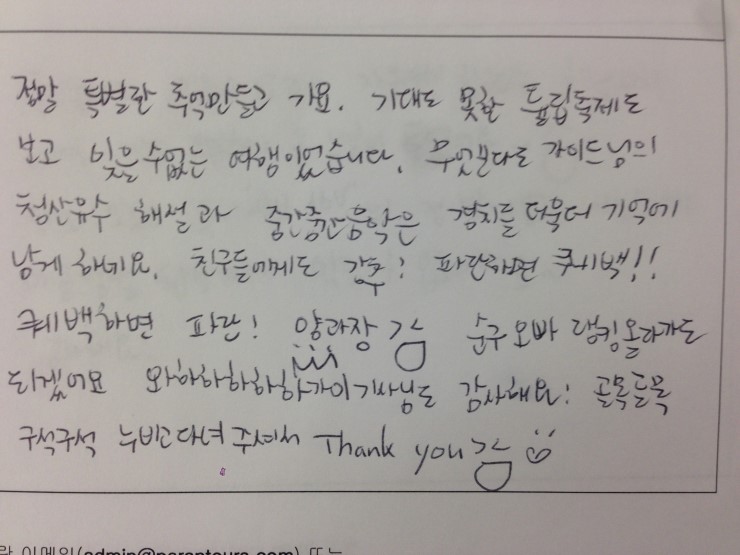 정말 특별한 추억만들고 가요. 기대도 못한 튤립축제도
보고 잊을수없는 여행이었습니다. 무엇보다도 가이드님의
청산유수 해설과 중간중간음악은 경치를 더욱더 기억에
남게 하네요. 친구들에게도 강추! 파란하면 투어백!!
투어백하면 파란! 양과장 순구오빠 랭킹올라가도
되겠어요 와하하하하하하가이기사님도 감사해요! 골목골목
구석구석 누비고다녀 주셔서 Thank you
란 이메일(admin@parantours.com) 또는